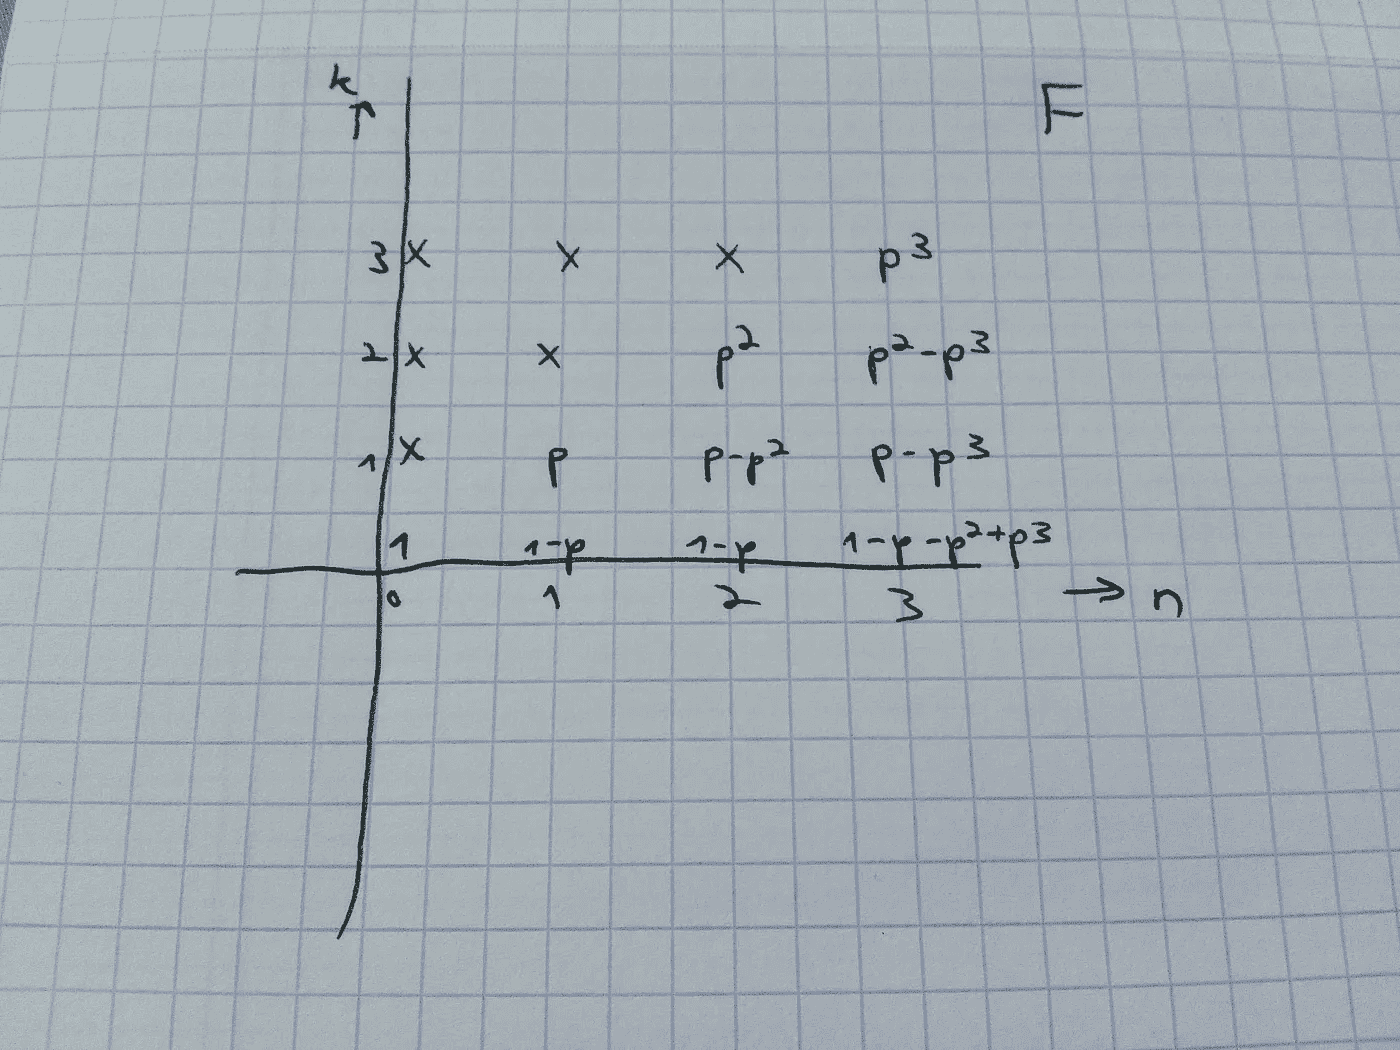 k F
↑
3 x x x p³
2 x x p² p²-p³
1 x p p-p² p-p³
1 1-p 1-p 1-p-p²+p³
0 1 2 3 → n